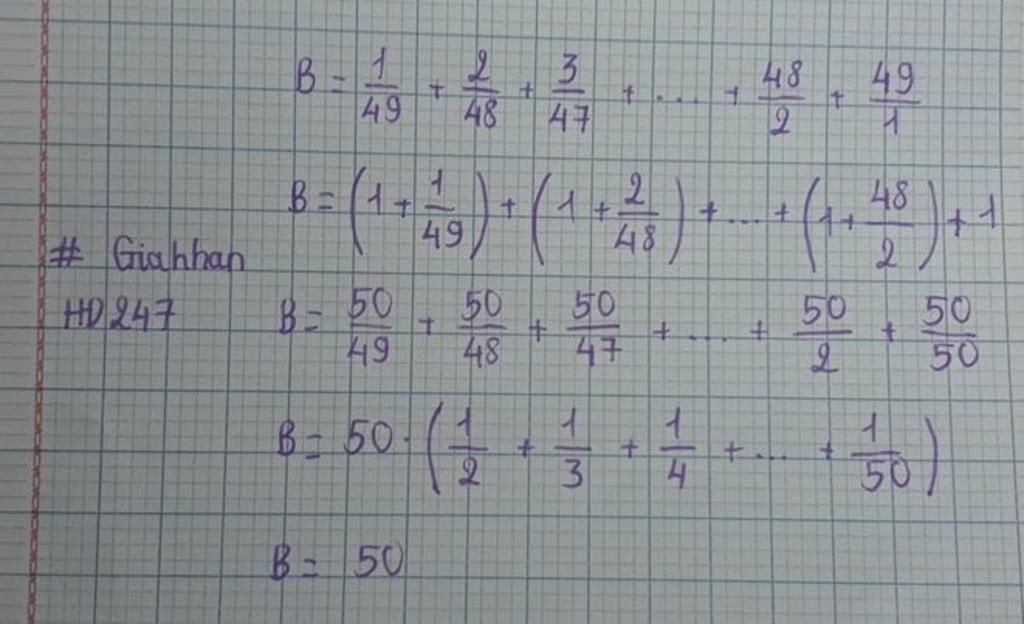 B = 1/49 + 2/48 + 3/47 + .... + 48/2 + 49/1
B = (1 + 1/49) + (1 + 2/48) + .... + (1 + 48/2) + 1
# Giahhan
HD247
B = 50/49 + 50/48 + 50/47 + .... + 50/2 + 50/50
B = 50 . (1/2 + 1/3 + 1/4 + .... + 1/50)
B = 50